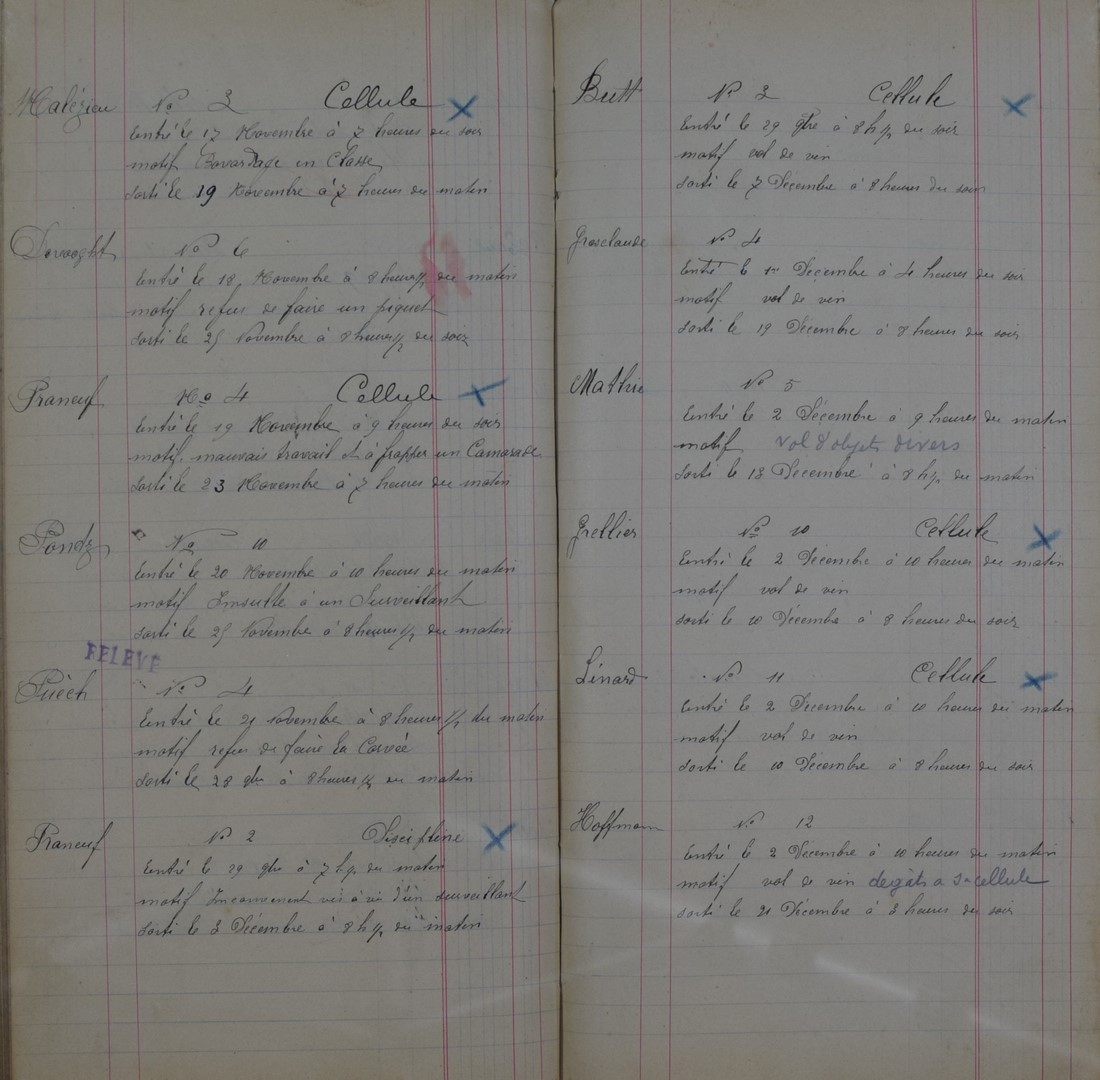 Malézieu N° 2 Cellule
Entré le 17 Novembre à 7 heures du soir
motif Bavardage en Classe
sorti le 19 Novembre à 7 heures du matin
N° 6
Entré le 18 Novembre à 8 heures 1/2 du matin
motif refus de faire un piquet
sorti le 25 Novembre à 8 heures 1/2 du soir
Praneuf N° 4 Cellule
Entré le 19 Novembre à 9 heures du soir
motif mauvais travail et à frapper un Camarade
sorti le 23 Novembre à 7 heures du matin
Pondz N° 10
Entré le 20 Novembre à 10 heures du matin
motif Insulte à un Surveillant
sorti le 25 Novembre à 8 heures 1/2 du matin
RELEVE
Puéch N° 4
Entré le 21 Novembre à 8 heures 1/2 du matin
motif refus de faire la Corvée
sorti le 28 9bre à 8 heures 1/2 du matin
Praneuf N° 2 Discipline
Entré le 29 9bre à 7 h 1/2 du matin
motif Inconvenent vis à vis d'un surveillant
sorti le 3 Décembre à 8 h 1/2 du matin
Butt N° 2 Cellule
Entré le 29 9bre à 8 h 1/2 du soir
motif vol de vin
sorti le 7 Décembre à 8 heures du soir
Grosclaude N° 4
Entré le 1er Décembre à 4 heures du soir
motif vol de vin
sorti le 19 Décembre à 8 heures du soir
Mathie N° 5
Entré le 2 Décembre à 9 heures du matin
motif vol d'objets divers
sorti le 18 Décembre à 8 h 1/2 du matin
Grellier N° 10 Cellule
Entré le 2 Décembre à 10 heures du matin
motif vol de vin
sorti le 10 Décembre à 8 heures du soir
Lénard N° 11 Cellule
Entré le 2 Décembre à 10 heures du matin
motif vol de vin
sorti le 10 Décembre à 8 heures du soir
Hoffmann N° 12
Entré le 2 Décembre à 10 heures du matin
motif vol de vin degâts a sa cellule
sorti le 21 Décembre à 2 heures du soir